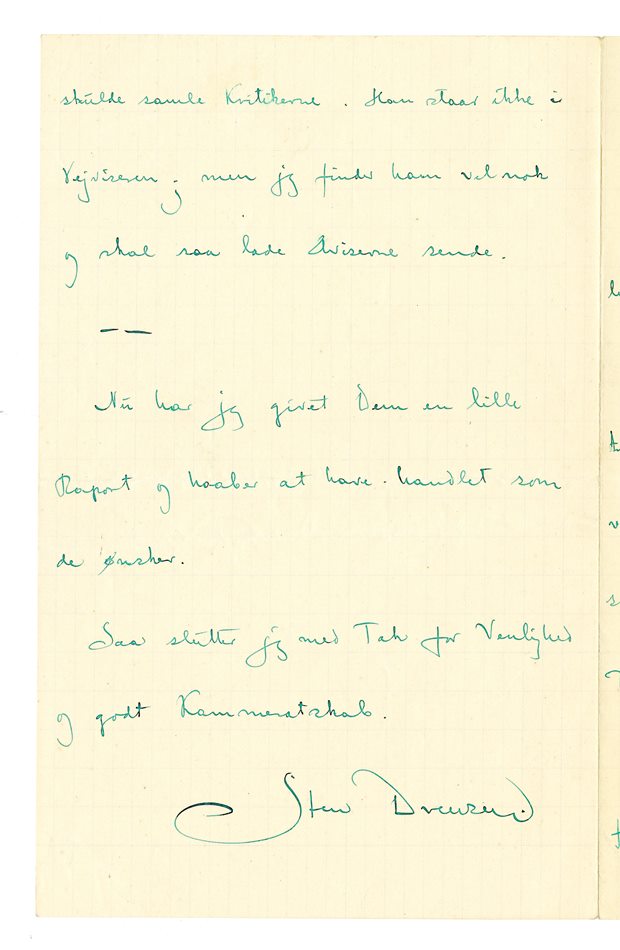 skulde samle Kritikerne. Han staar ikke i
Vejviseren; men jeg finder ham vel nok
og skal saa lade Aviserne sende.
— —
Nu har jeg givet Dem en lille
Raport og haaber at have handlet som
de ønsker.
Saa slutter jeg med Tak for Venlighed
og godt Kammeratskab.
Sten Drewsen.